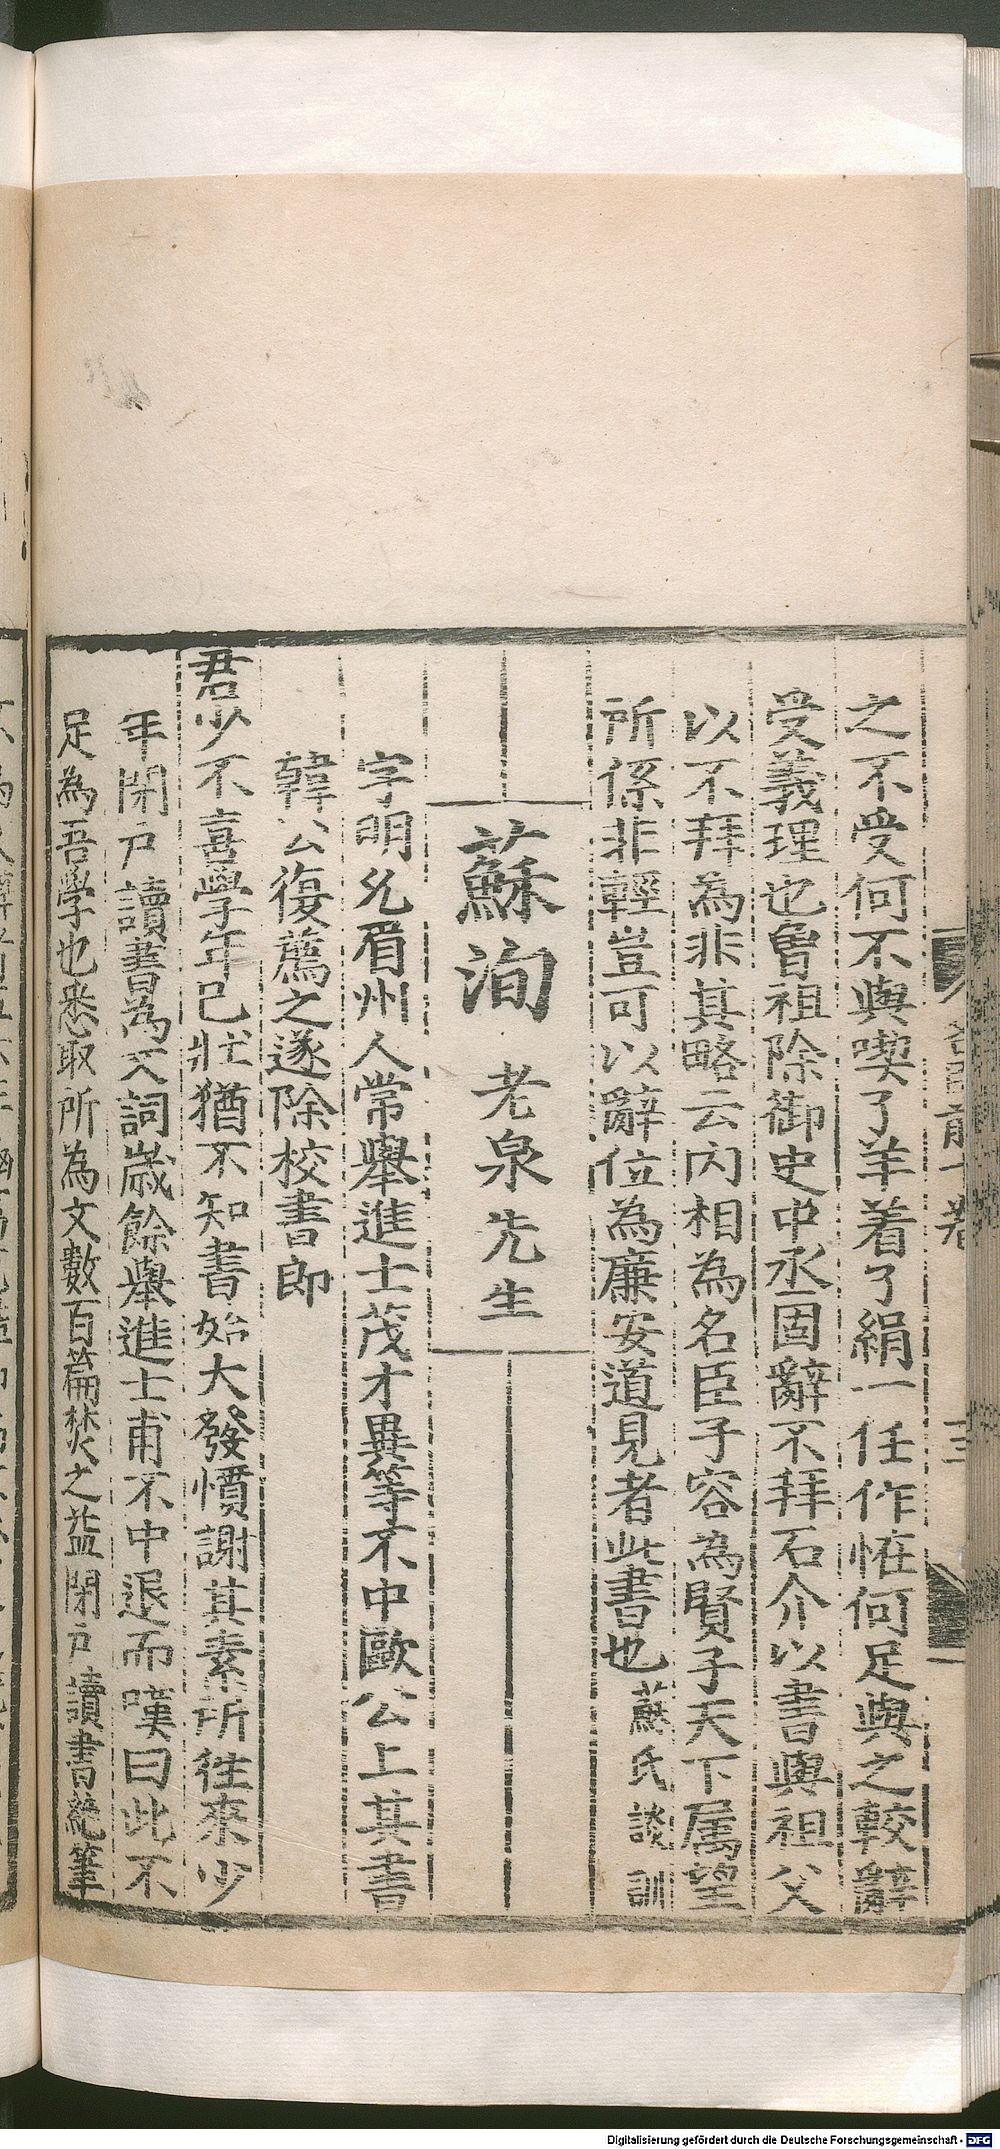 之不受何不與喫了羊着了絹一任作恠何足與之較辭
受義理也曾祖除御史中丞固辭不拜石介以書與祖父
以不拜為非其略云內相為名臣子容為賢子天下属望
所係非輕豈可以辭位為廉安道見者此書也蘇氏談訓
蘇洵 老泉先生
字明允眉州人常舉進士茂才異等不中歐公上其書
韓公復薦之遂除校書郎
君少不喜學年已壯猶不知書始大發憤謝其素所往來少
年閉戶讀書為文詞歲餘舉進士甫不中退而嘆曰此不
足為吾學也悉取所為文數百篇焚之益閉戶讀書絕筆
Digitalisierung gefördert durch die Deutsche Forschungsgemeinschaft - DFG